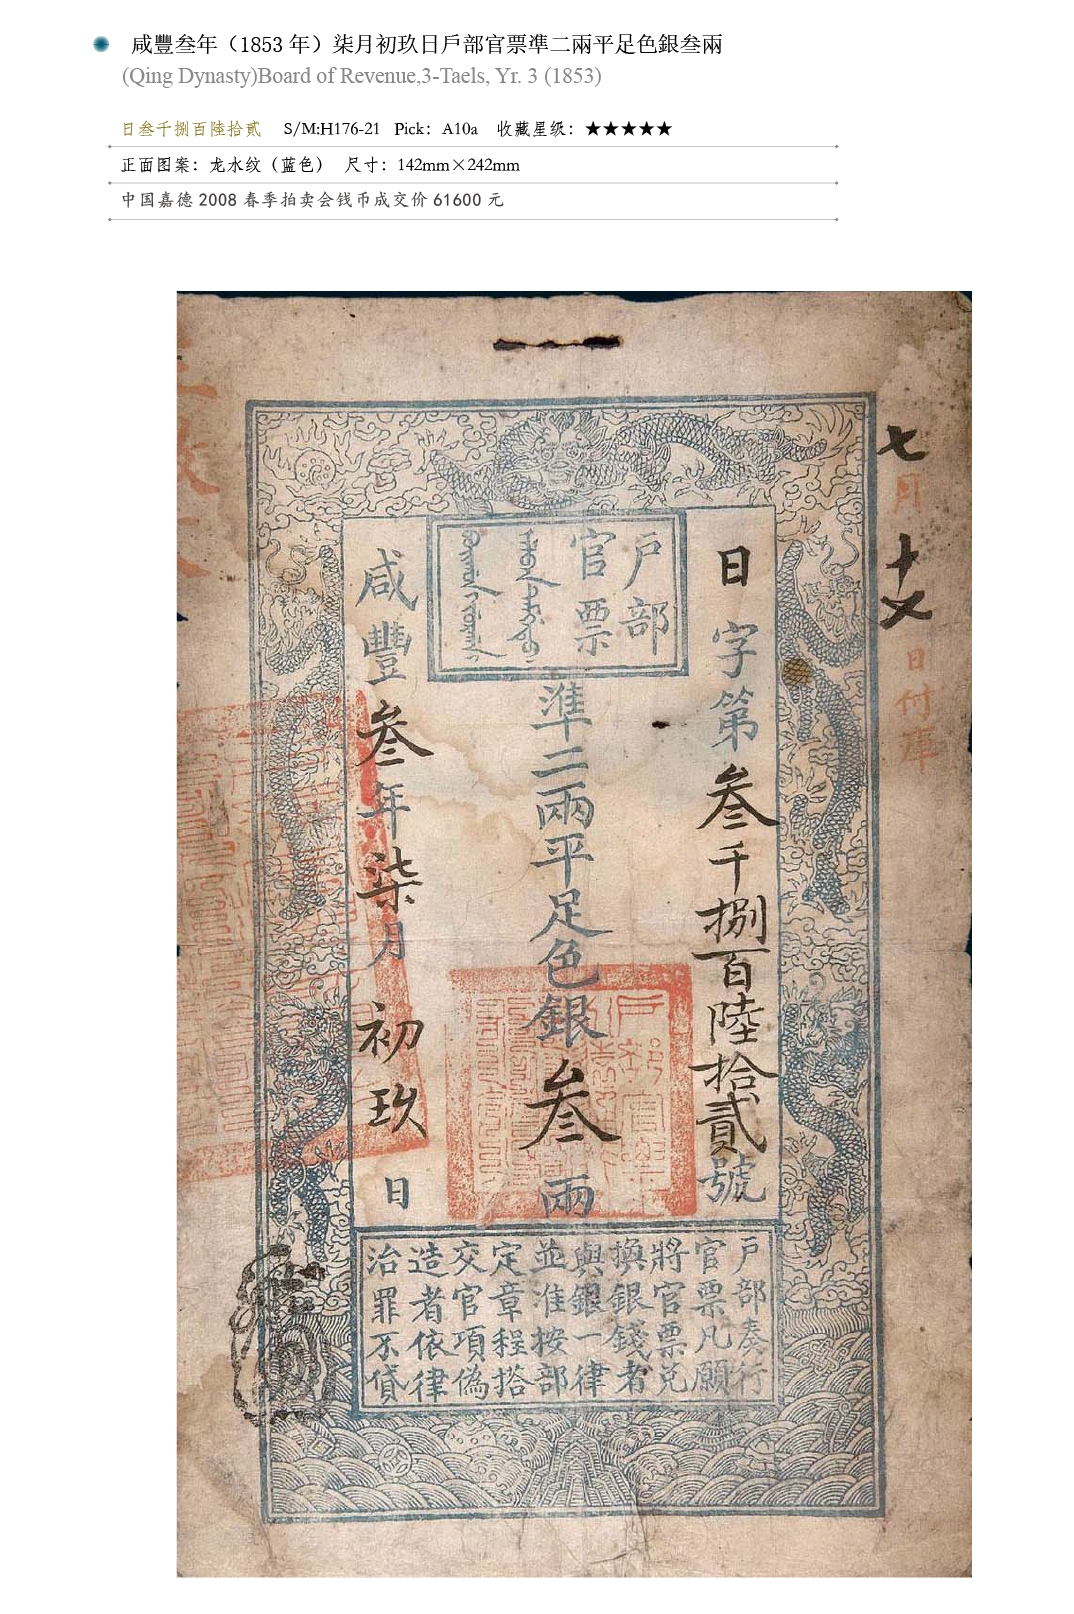 咸豐叁年（1853 年）柒月初玖日戶部官票凖二兩平足色銀叁兩
(Qing Dynasty)Board of Revenue,3-Taels, Yr. 3 (1853)
日叁千捌百陸拾貳 S/M:H176-21 Pick：A10a 收藏星级：★★★★★
正面图案：龙水纹（蓝色） 尺寸：142mm×242mm
中国嘉德 2008 春季拍卖会钱币成交价 61600 元
七月十又日付庫
日字第叁千捌百陸拾貳號
戶部
官票
準二兩平足色銀叁兩
咸豐叁年柒月初玖日
戶部奏行
官票凡願
將官票兌
換銀錢者
與銀一律
並准按部
定章程搭
交官項偽
造者依律
治罪不貸